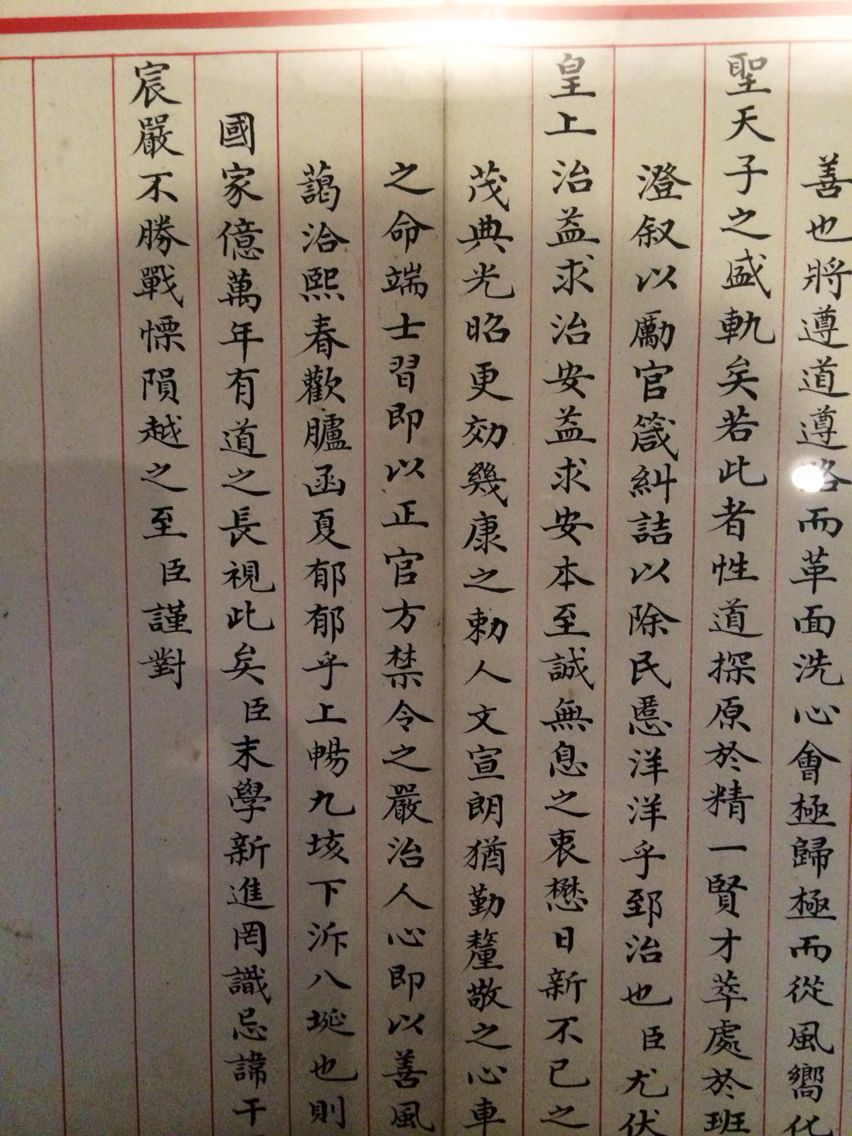 善也將遵道遵而革面洗心會極歸極而從風嚮化
聖天子之盛軌矣若此者性道探原於精一賢才萃處於班
澄叙以勵官箴糾詰以除民慝洋洋乎郅治也臣尤伏
皇上治益求治安益求安本至誠無息之衷懋日新不已之
茂典光昭更効幾康之勅人文宣朗猶勤釐敬之心車
之命端士習即以正官方禁令之嚴治人心即以善風
藹洽熙春歡臚函夏郁郁乎上暢九垓下泝八埏也則
國家億萬年有道之長視此矣臣末學新進罔識忌諱干
宸嚴不勝戰慄隕越之至臣謹對